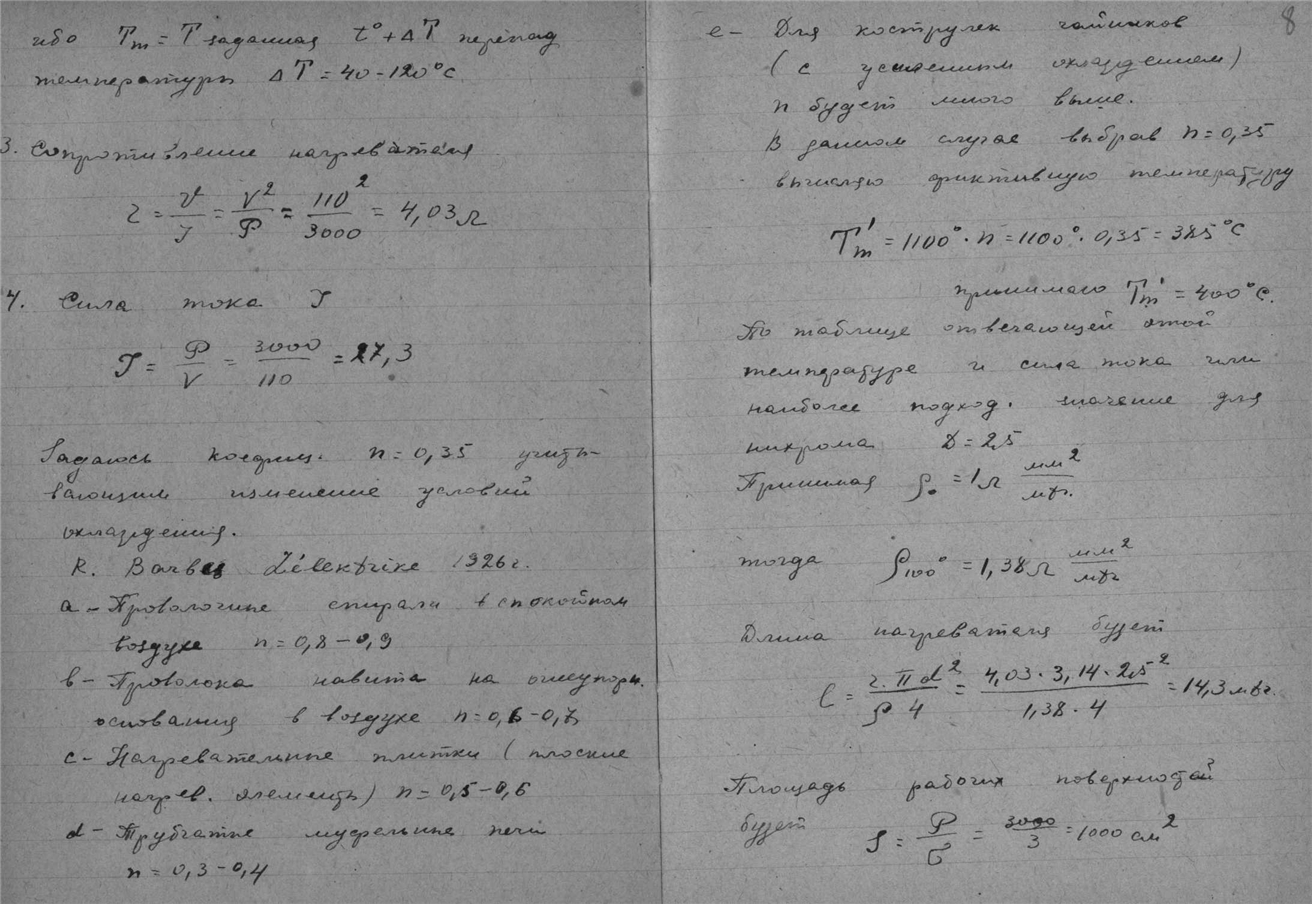 ибо Tm = T заданная t° + ΔT перепад
температуры ΔT = 40-120°C
3. Сопротивление нагревателя
r = V/J = V²/P = 110²/3000 = 4,03 Ω
4. Сила тока J
J = P/V = 3000/110 = 27,3
Задаюсь коефиц. n = 0,35 учиты-
вающим изменение условий
охлаждения.
R. 1926 г.
a - Проволочные спирали в спокойном
воздухе n = 0,8-0,9
b - Проволока навита на огнеупорн.
основания в воздухе n = 0,6-0,7
c - Нагревательные плитки (плоские
нагрев. элементы) n = 0,5-0,6
d - Трубчатые муфельные печи
n = 0,3-0,4
8
e - Для кострулек чайников
(с усиленным охлаждением)
n будет много выше.
В данном случае выбрав n = 0,35
вычисляю фиктивную температуру
Tm' = 1100° · n = 1100° · 0,35 = 385°C
принимаю Tm' = 400°C.
По таблице отвечающей этой
температуре и сила тока или
наиболее подход. значение для
нихрома D = 2,5
Принимая ρ₀ = 1 Ω мм²/мтр.
тогда ρ100° = 1,38 Ω мм²/мтр
Длина нагревателя будет
l = r·π d²/ρ 4 = 4,03 · 3,14 · 2,5²/1,38 · 4 = 14,3 мтр.
Площадь рабочих поверхностей
будет S = P/σ = 3000/3 = 1000 см²